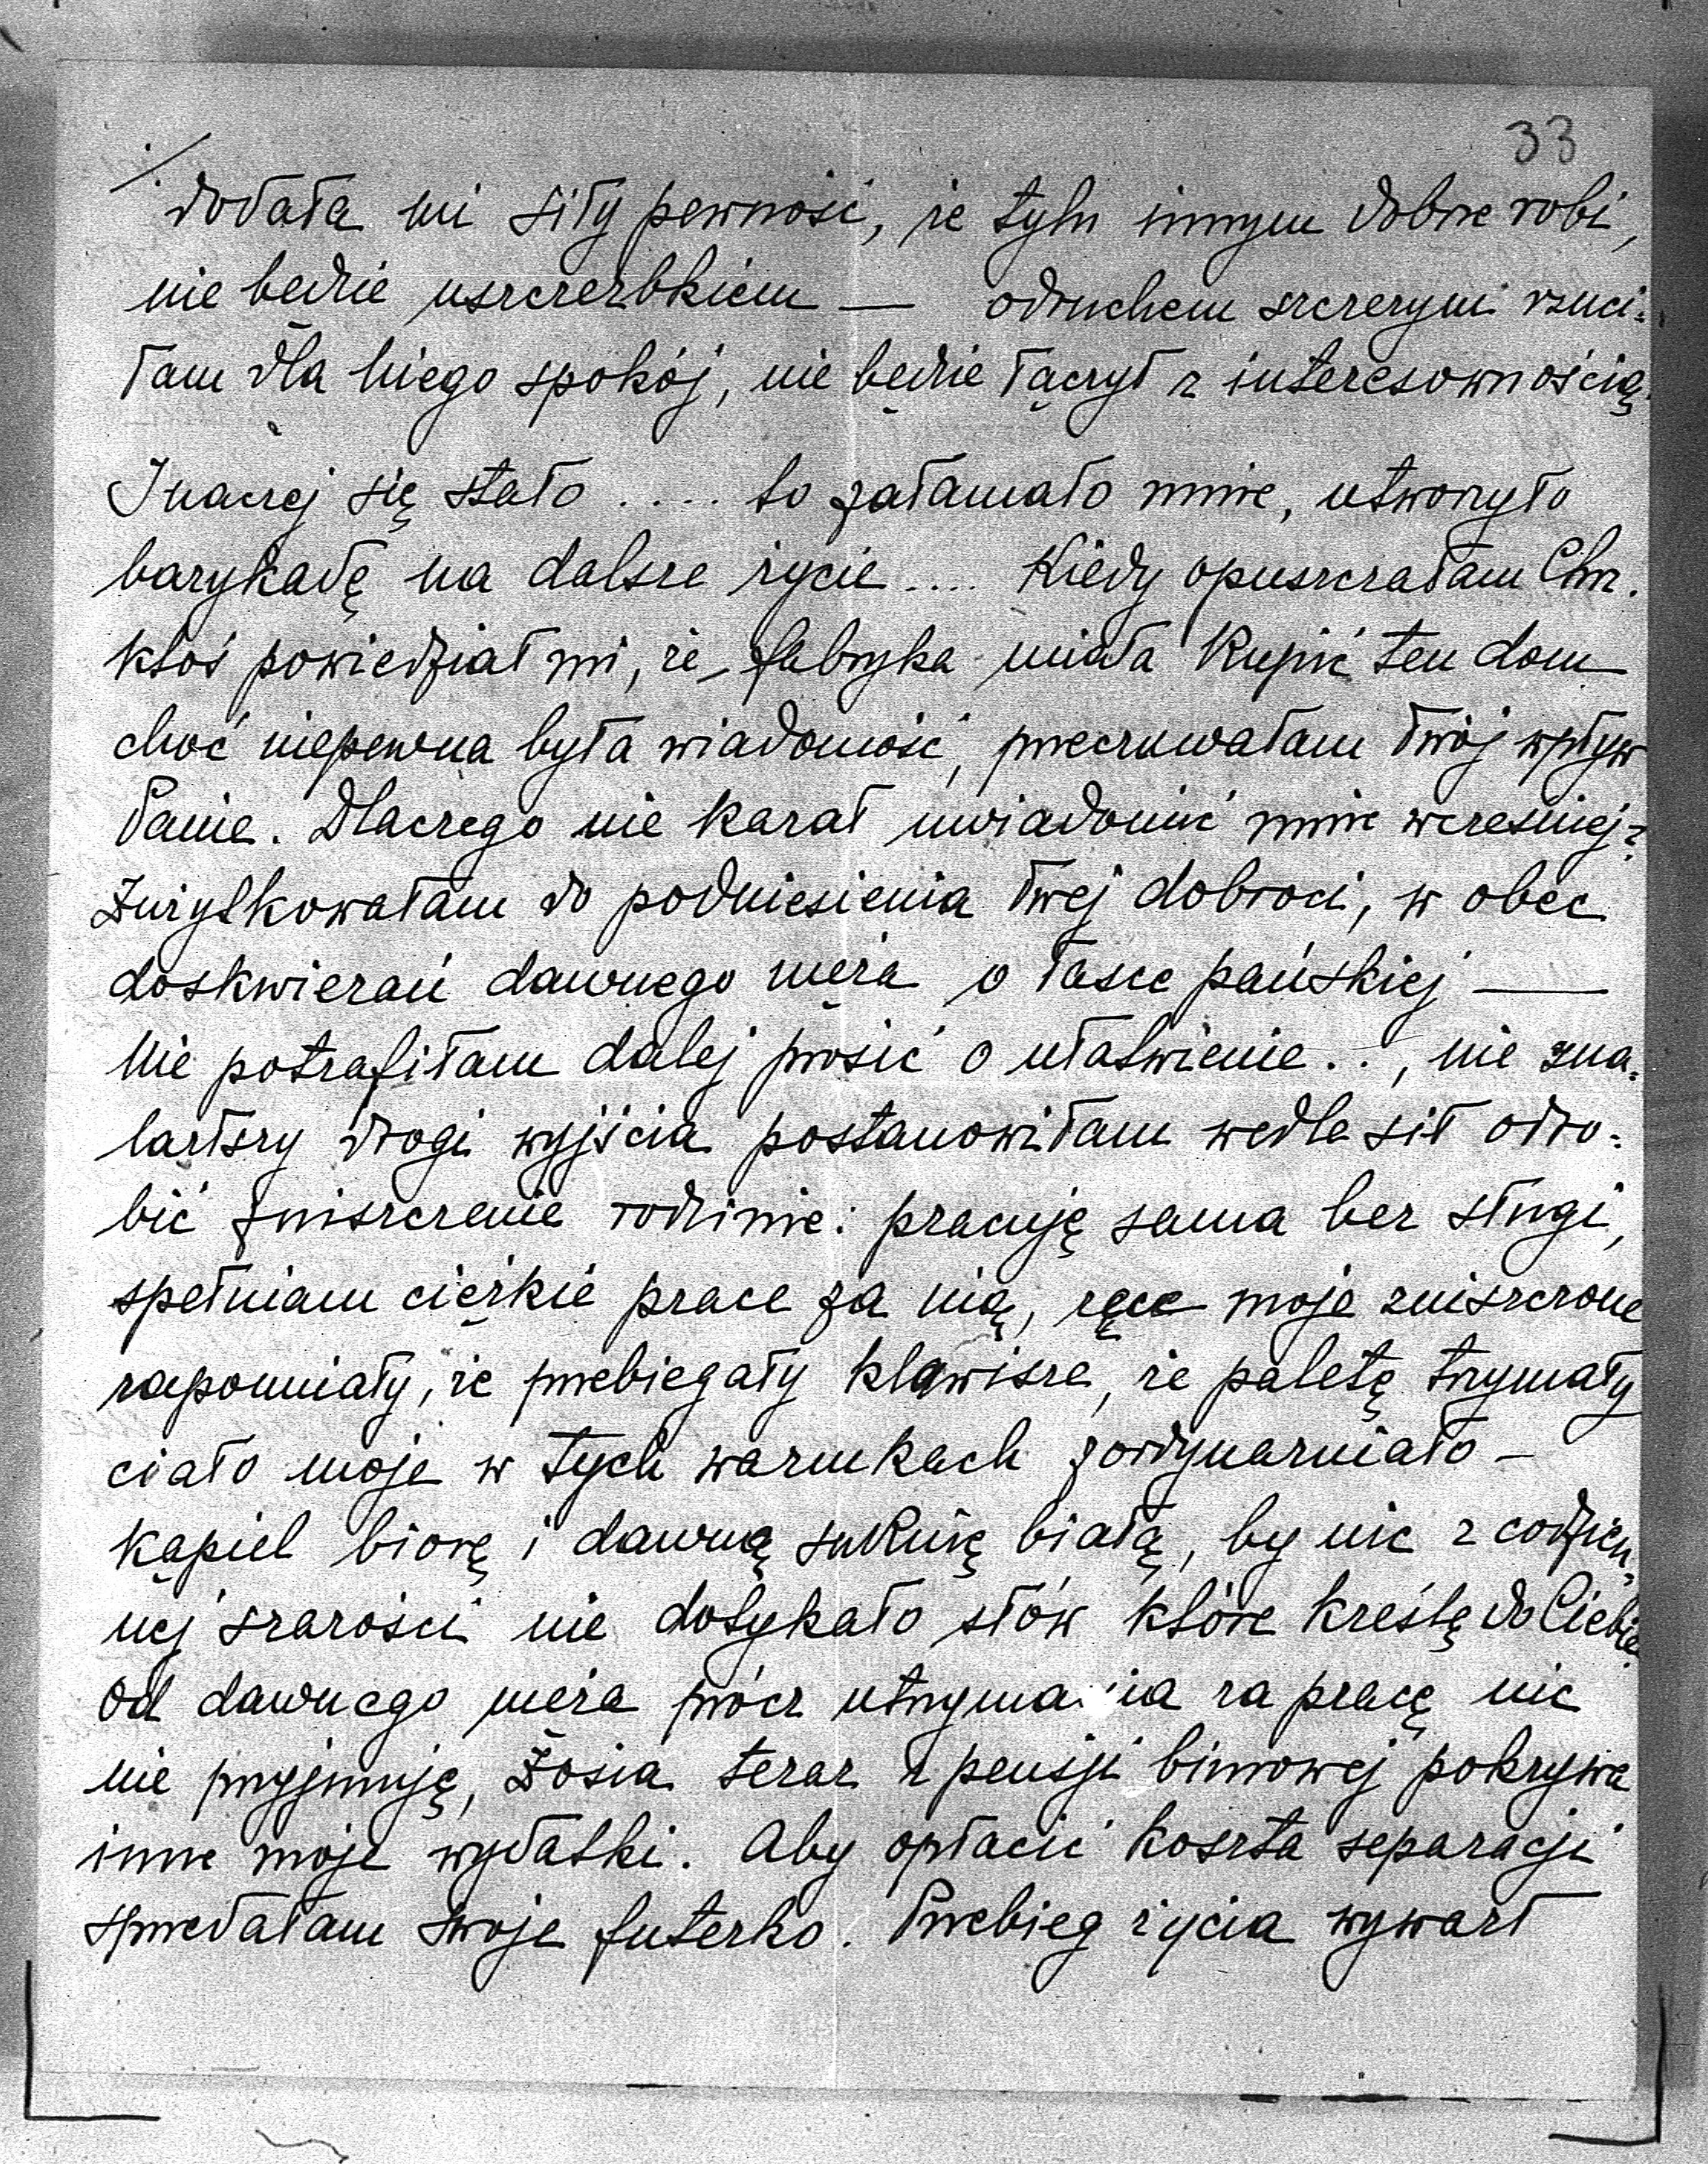 33
./.
dodała mi siły pewność, że tylu innym dobrze robi,
nie będzie uszczerbkiem — odruchem szczerym rzuci=
łam dla niego spokój, nie będzie łączył z interesownością.
Inaczej się stało .... to załamało mnie, utworzyło
barykadę na dalsze życie .... Kiedy opuszczałam Chrz.
ktoś powiedział mi, że fabryka miała kupić ten dom
choć niepewna była wiadomość, przeczuwałam Twój wpływ
Panie. Dlaczego nie kazał uwiadomić mnie wcześniej?
Zużytkowałam do podniesienia Twej dobroci, w obec
doskwierań dawnego męża o łasce pańskiej —
Nie potrafiłam dalej prosić o ułatwienie .., nie zna=
lazłszy drogi wyjścia postanowiłam wedle sił odro=
bić zniszczenie rodzinie: pracuję sama bez sługi,
spełniam ciężkie prace za nią, ręce moje zniszczone
zapomniały, że przebiegały klawisze, że paletę trzymały
ciało moje w tych warunkach zordynarniało —
kąpiel biorę i dawną suknię białą, by nic z codzien=
nej szarości nie dotykało słów które kreślę do Ciebie.
Od dawnego męża prócz utrzymania za pracę nic
nie przyjmuję, Zosia teraz z pensji biurowej pokrywa
inne moje wydatki. Aby opłacić koszta separacji
sprzedałam swoje futerko. Przebieg życia wywarł